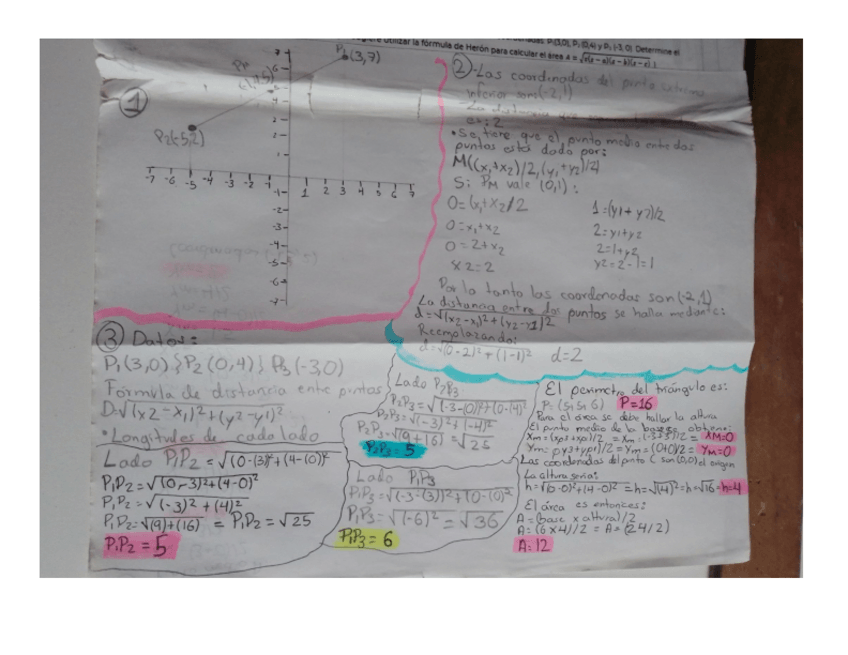 utilizar la fórmula de Herón para calcular el área A =
①
P1(3,7)
P2(-5,2)
7
6
4
2
1
-7 -6 -5 -4 -3 -2 -1
1 2 3 4 5 6 7
-1
-2
-3
-4
-5
-6
-7
②-Las coordenadas del punto extremo
inferior son(-2,1)
-La distancia que
es: 2
•Se tiene que el punto medio entre dos
puntos está dado por:
M((x1+x2)/2,(y1+y2)/2)
Si PM vale (0,1):
0=(x1+x2/2
0=x1+x2
0=2+x2
x2=2
1=(y1+y2)/2
2=y1+y2
2=1+y2
y2=2-1=1
Por lo tanto las coordenadas son(-2,1)
La distancia entre dos puntos se halla mediante:
d=√(x2-x1)²+(y2-y1)²
Reemplazando:
d=√(0-2)²+(1-1)² d=2
③ Datos:
P1(3,0)}P2(0,4)}P3(-3,0)
Fórmula de distancia entre puntos
D=√(x2-x1)²+(y2-y1)²
•Longitudes de cada lado
Lado P1P2=√(0-(3)²+(4-(0)²
P1P2=√(0,-3)²+(4-0)²
P1P2=√(-3)²+(4)²
P1P2=√(9)+(16) = P1P2=√25
P1P2=5
Lado P2P3
P2P3=√(-3-(0)²+(0-(4)²
P2P3=√(-3)²+(-4)²
P2P3=√(9+(16)=√25
P2P3=5
Lado P1P3
P1P3=√(-3-(3))²+(0-(0)²
P1P3=√(-6)²=√36
P1P3=6
El perimetro del triángulo es:
P=(5+5+6) P=16
Para el área se debe hallar la altura
El punto medio de la base es obteno:
Xm=(xp3+xp1)/2=Xm=(-3+3)/2= XM=0
Ym: py3+yp1)/2=Ym=(0+0)/2= YM=0
Las coordenadas del punto C son(0,0) el origen
La altura seria:
h=√(0-0)²+(4-0)²=h=√(4)²=h=√16=h=4
El área es entonces:
A=(base x altura)/2
A=(6x4)/2=A=(24/2)
A=12